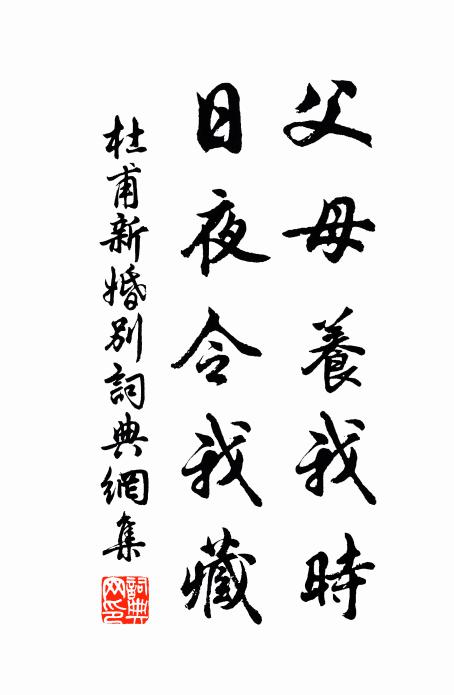 父母養我時
日夜令我藏
杜甫新婚別詞典網集
詞典網印